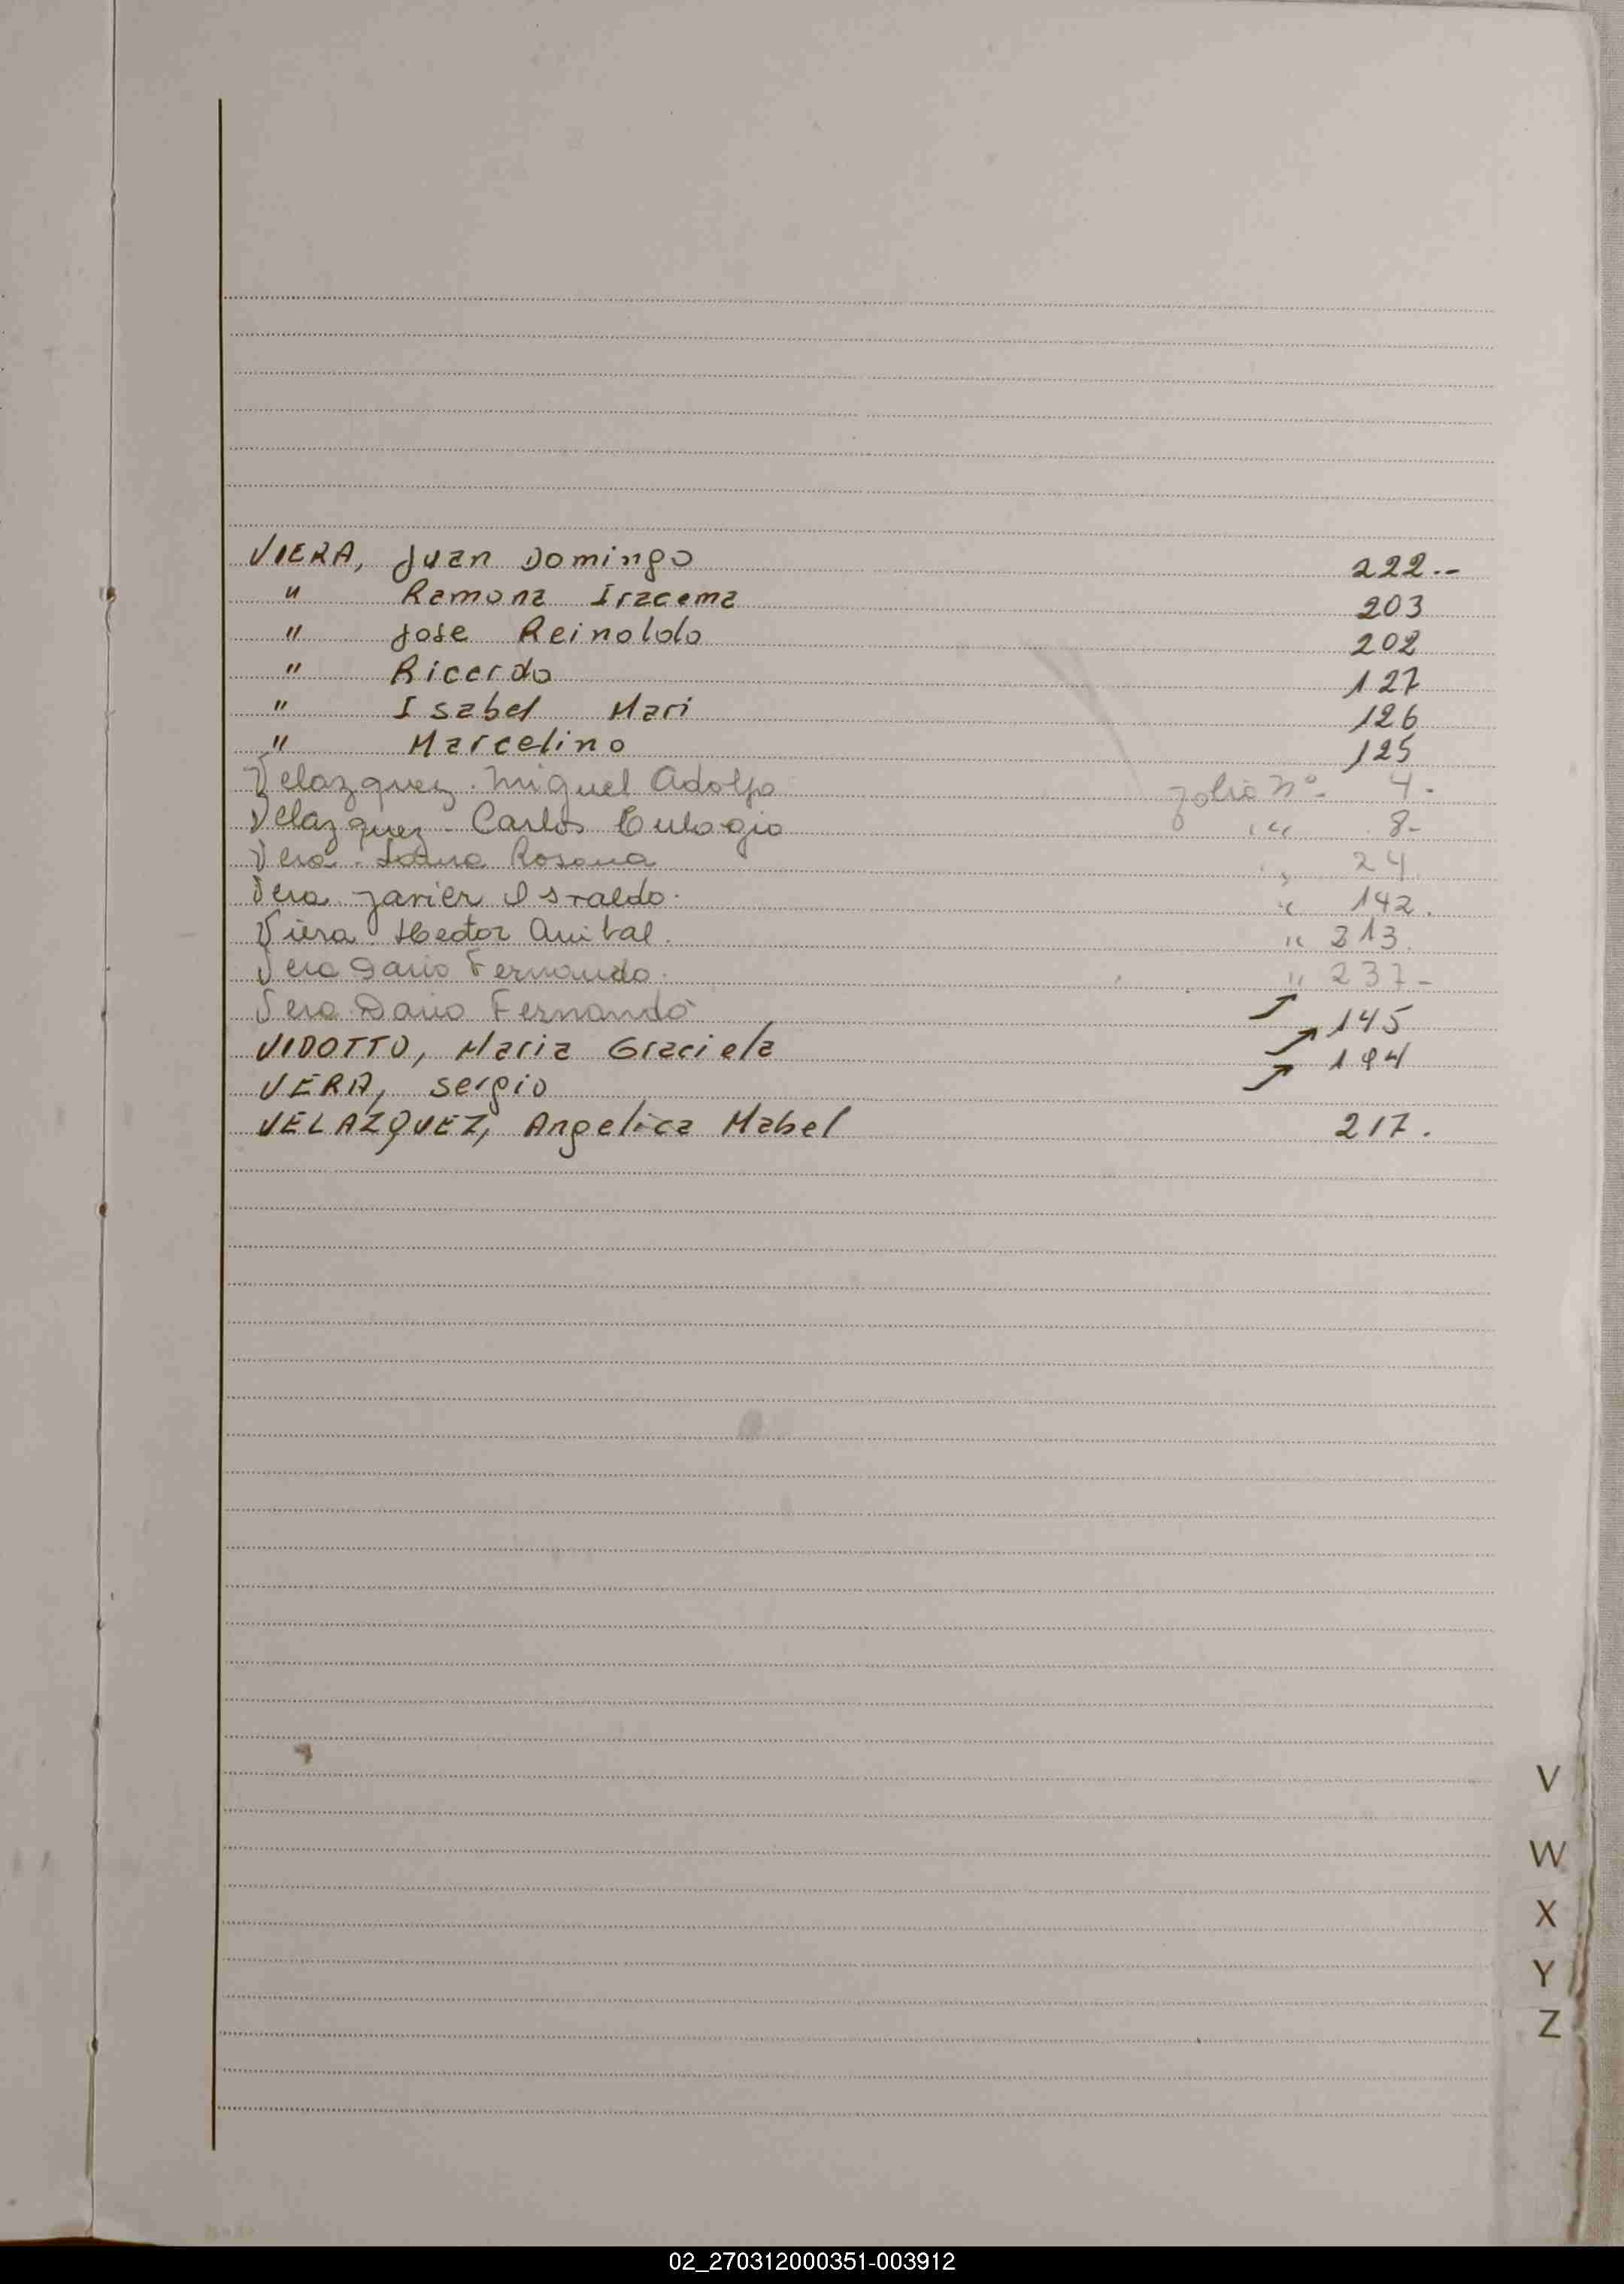 VIERA, Juan Domingo 222.--
" Ramona Iracema 203
" Jose Reinoldo 202
" Ricardo 127
" Isabel Mari 126
" Marcelino 125
Velazquez. Miguel Adolfo folio Nº- 4.
Velazquez - Carlos Eulogio " 8-
Vera. Rosana " 24
Vera Javier Osvaldo. " 142.
Viera. Hector Anibal. " 213.
Vera Dario Fernando. " 237-
Vera Dario Fernando
VIDOTTO, Maria Graciela 145
VERA, Sergio 194
VELAZQUEZ, Angelica Mabel 217.
V
W
X
Y
Z
02_270312000351-003912